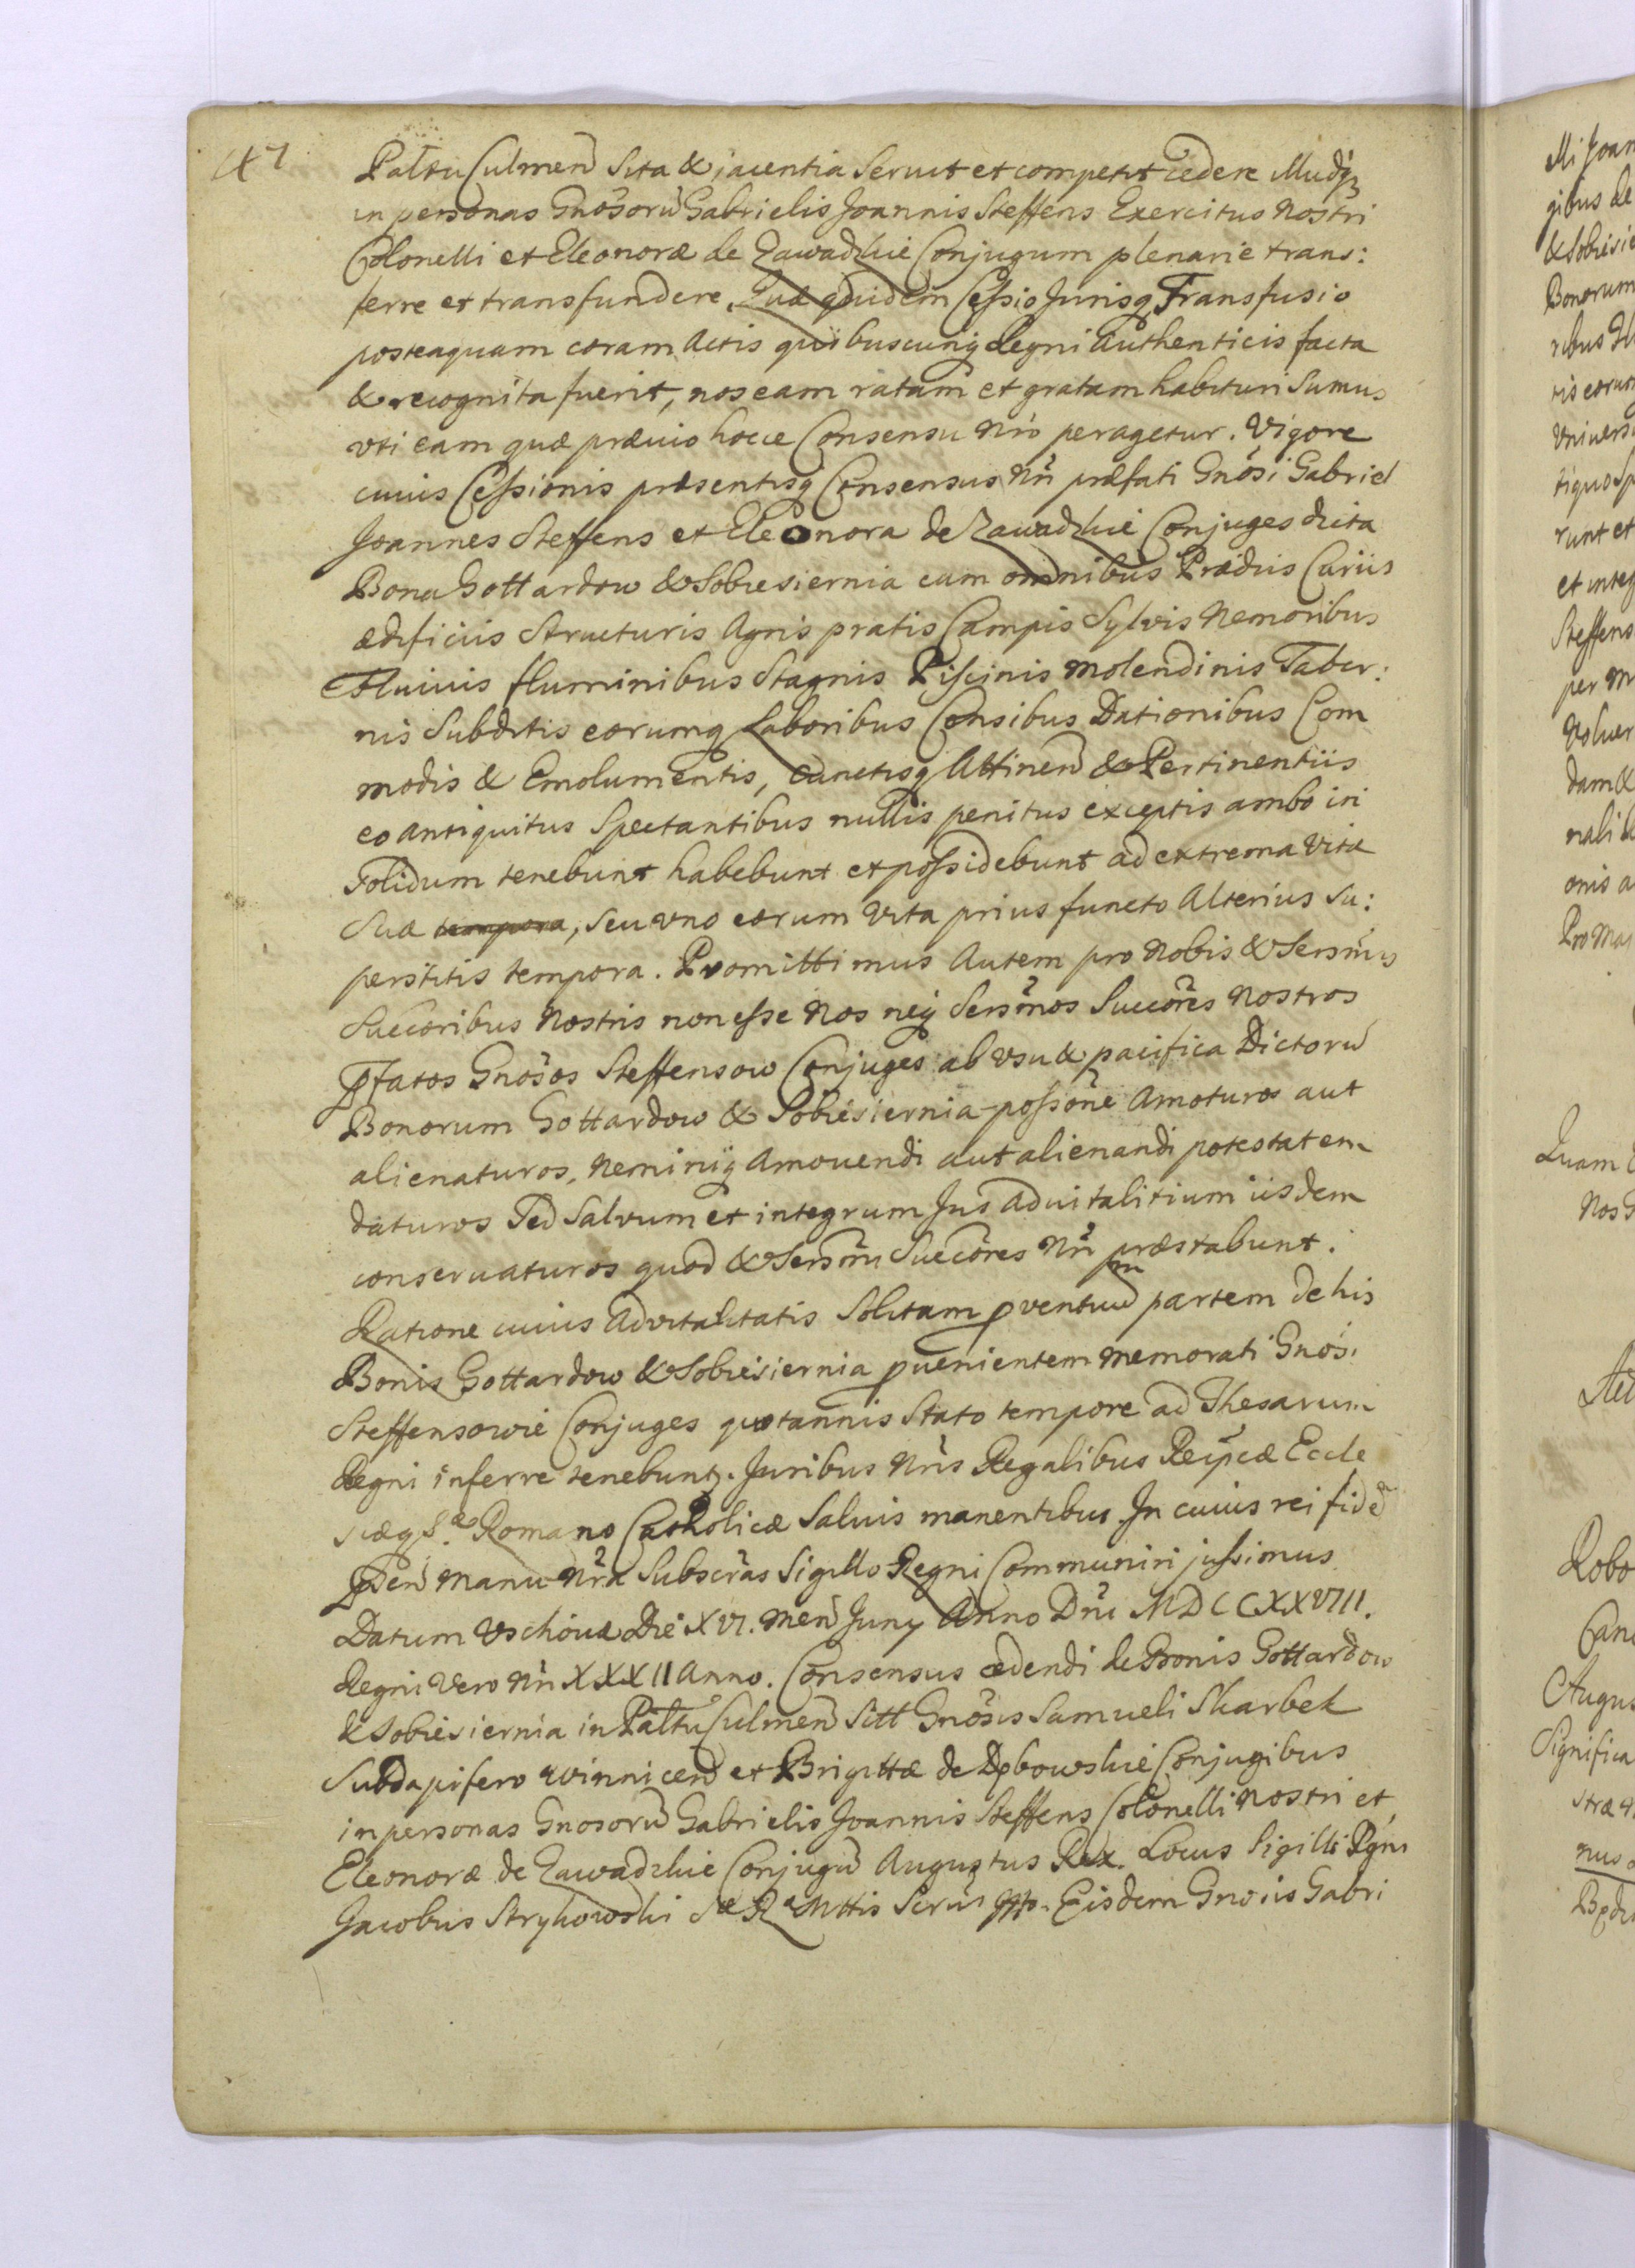 47
Paltu Culmen Sita & jacentia Servit et competit cedere illudq3
in personas Gnosorū Gabrielis Joannis Steffens Exercitus Nostri
Colonelli et Eleonoræ de Zawadzkie Conjugum plenarie trans:
ferre et transfundere. Quæ quidem Cessio Jurisq Transfusio
posteaquam coram Actis quibuscunq Regni Authenticis facta
& recognita fuerit, nos eam ratam et gratam habituri Sumus
uti eam quæ prævio hocce Consensu Nrō peragetur. Vigore
cuius Cessionis præsentisq Consensus Nrī præfati Gnosi Gabriel
Joannes Steffens et Eleonora de Zawadzkie Conjuges dicta
Bona Gottardow & Sobiesiernia cum omnibus Prædiis Curiis
ædificiis Structuris Agris pratis Campis Sylvis Nemoribus
Fluiuis fluminibus Stagnis Piscinis Molendinis Taber:
nis Subditis eorumq Laboribus Censibus Dationibus Com
modis & Emolumentis, cunctisq Attinen & Pertinentiis
eo antiquitus Spectantibus nullis penitus exceptis ambo in
Solidum tenebunt habebunt et possidebunt ad extrema Vitæ
Suæ tempora, seu uno eorum Vita prius functo Alterius Su:
perstitis tempora. Promittimus Autem pro Nobis & Sersmis
Succoribus Nostris non esse Nos neq Sersmos Succores Nostros
Pfatos Gnosos Steffensow Conjuges ab Usu & pacifica Dictorū
Bonorum Gottardow & Sobiesiernia possone Amoturos aut
alienaturos, Neminiq Amovendi aut alienandi potestatem
daturos Sed Salvum et integrum Jus Advitalitium iisdem
conservaturos quod & Sersmi Succores Nrī præstabunt.
Ratione cuius Advitalitatis Solitam pventuū partem de his
Bonis Gottardow & Sobiesiernia pvenientem memorati Gnosi
Steffensowie Conjuges quotannis Stato tempore ad Thesarum
Regni inferre tenebuntr. Juribus Nrīs Regalibus Reipcæ Eccle
siæq S.æ Romano Catholicæ Salvis manentibus. In cuius rei fidē
Psen Manu Nrā Subscras Sigillo Regni Communiri jussimus
Datum Vschovæ Die XVI. Men Juny Anno Dni MDCCXXVIII.
Regni Vero Nrī XXXII Anno. Consensus cedendi de Bonis Gottardow
& Sobiesiernia in Paltu Culmen Sitt Gnosis Samueli Skarbek
Subdapifero Winnicen et Brigittæ de Dębowskie Conjugibus
in personas Gnosorū Gabrielis Joannis Steffens Colonelli Nostri et
Eleonoræ de Zawadzkie Conjugū Augustus Rex. Locus Sigilli Rgni
Jacobus Strykowski Sæ Ræ Mttis Scrius Mp. Eisdem Gnosis Gabri